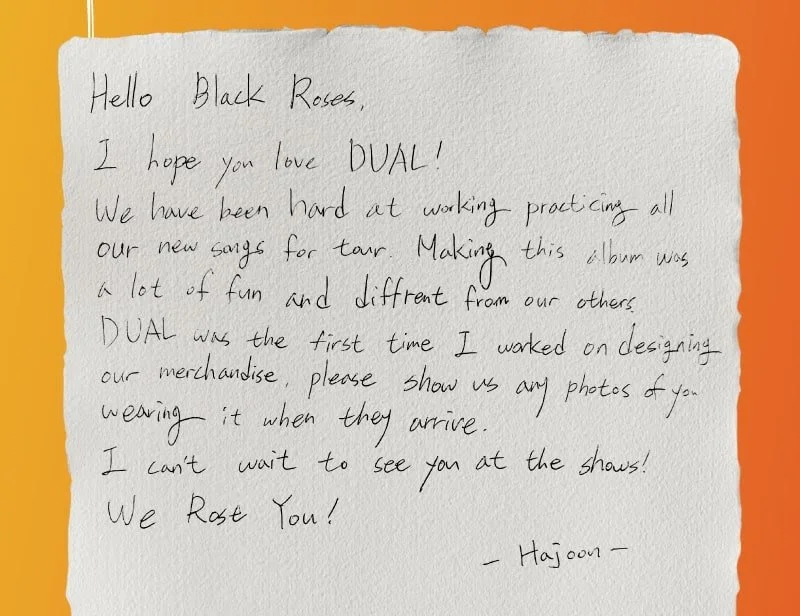 Hello Black Roses,
I hope you love DUAL!
We have been hard at working practicing all
our new songs for tour. Making this album was
a lot of fun and diffrent from our others.
DUAL was the first time I worked on designing
our merchandise, please show us any photos of you
wearing it when they arrive.
I can't wait to see you at the shows!
We Rose You!
- Hajoon -